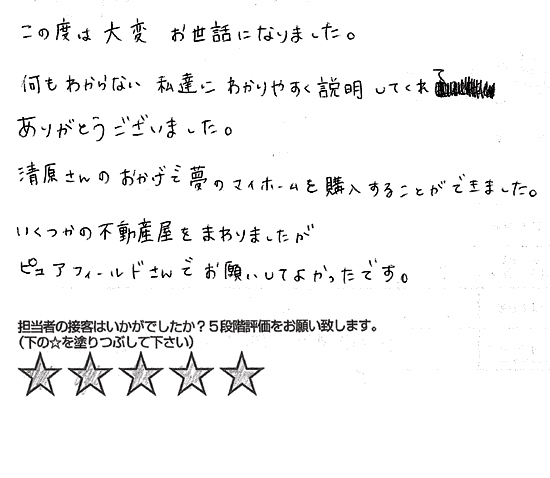 この度は大変 お世話になりました。
何もわからない 私達に わかりやすく説明 してくれて
ありがとうございました。
清原さんの おかげで夢の マイホームを購入することができました。
いくつかの不動産屋を まわりましたが
ピュアフィールドさんで お願いしてよかったです。
担当者の接客はいかがでしたか？５段階評価をお願い致します。
（下の☆を塗りつぶして下さい）